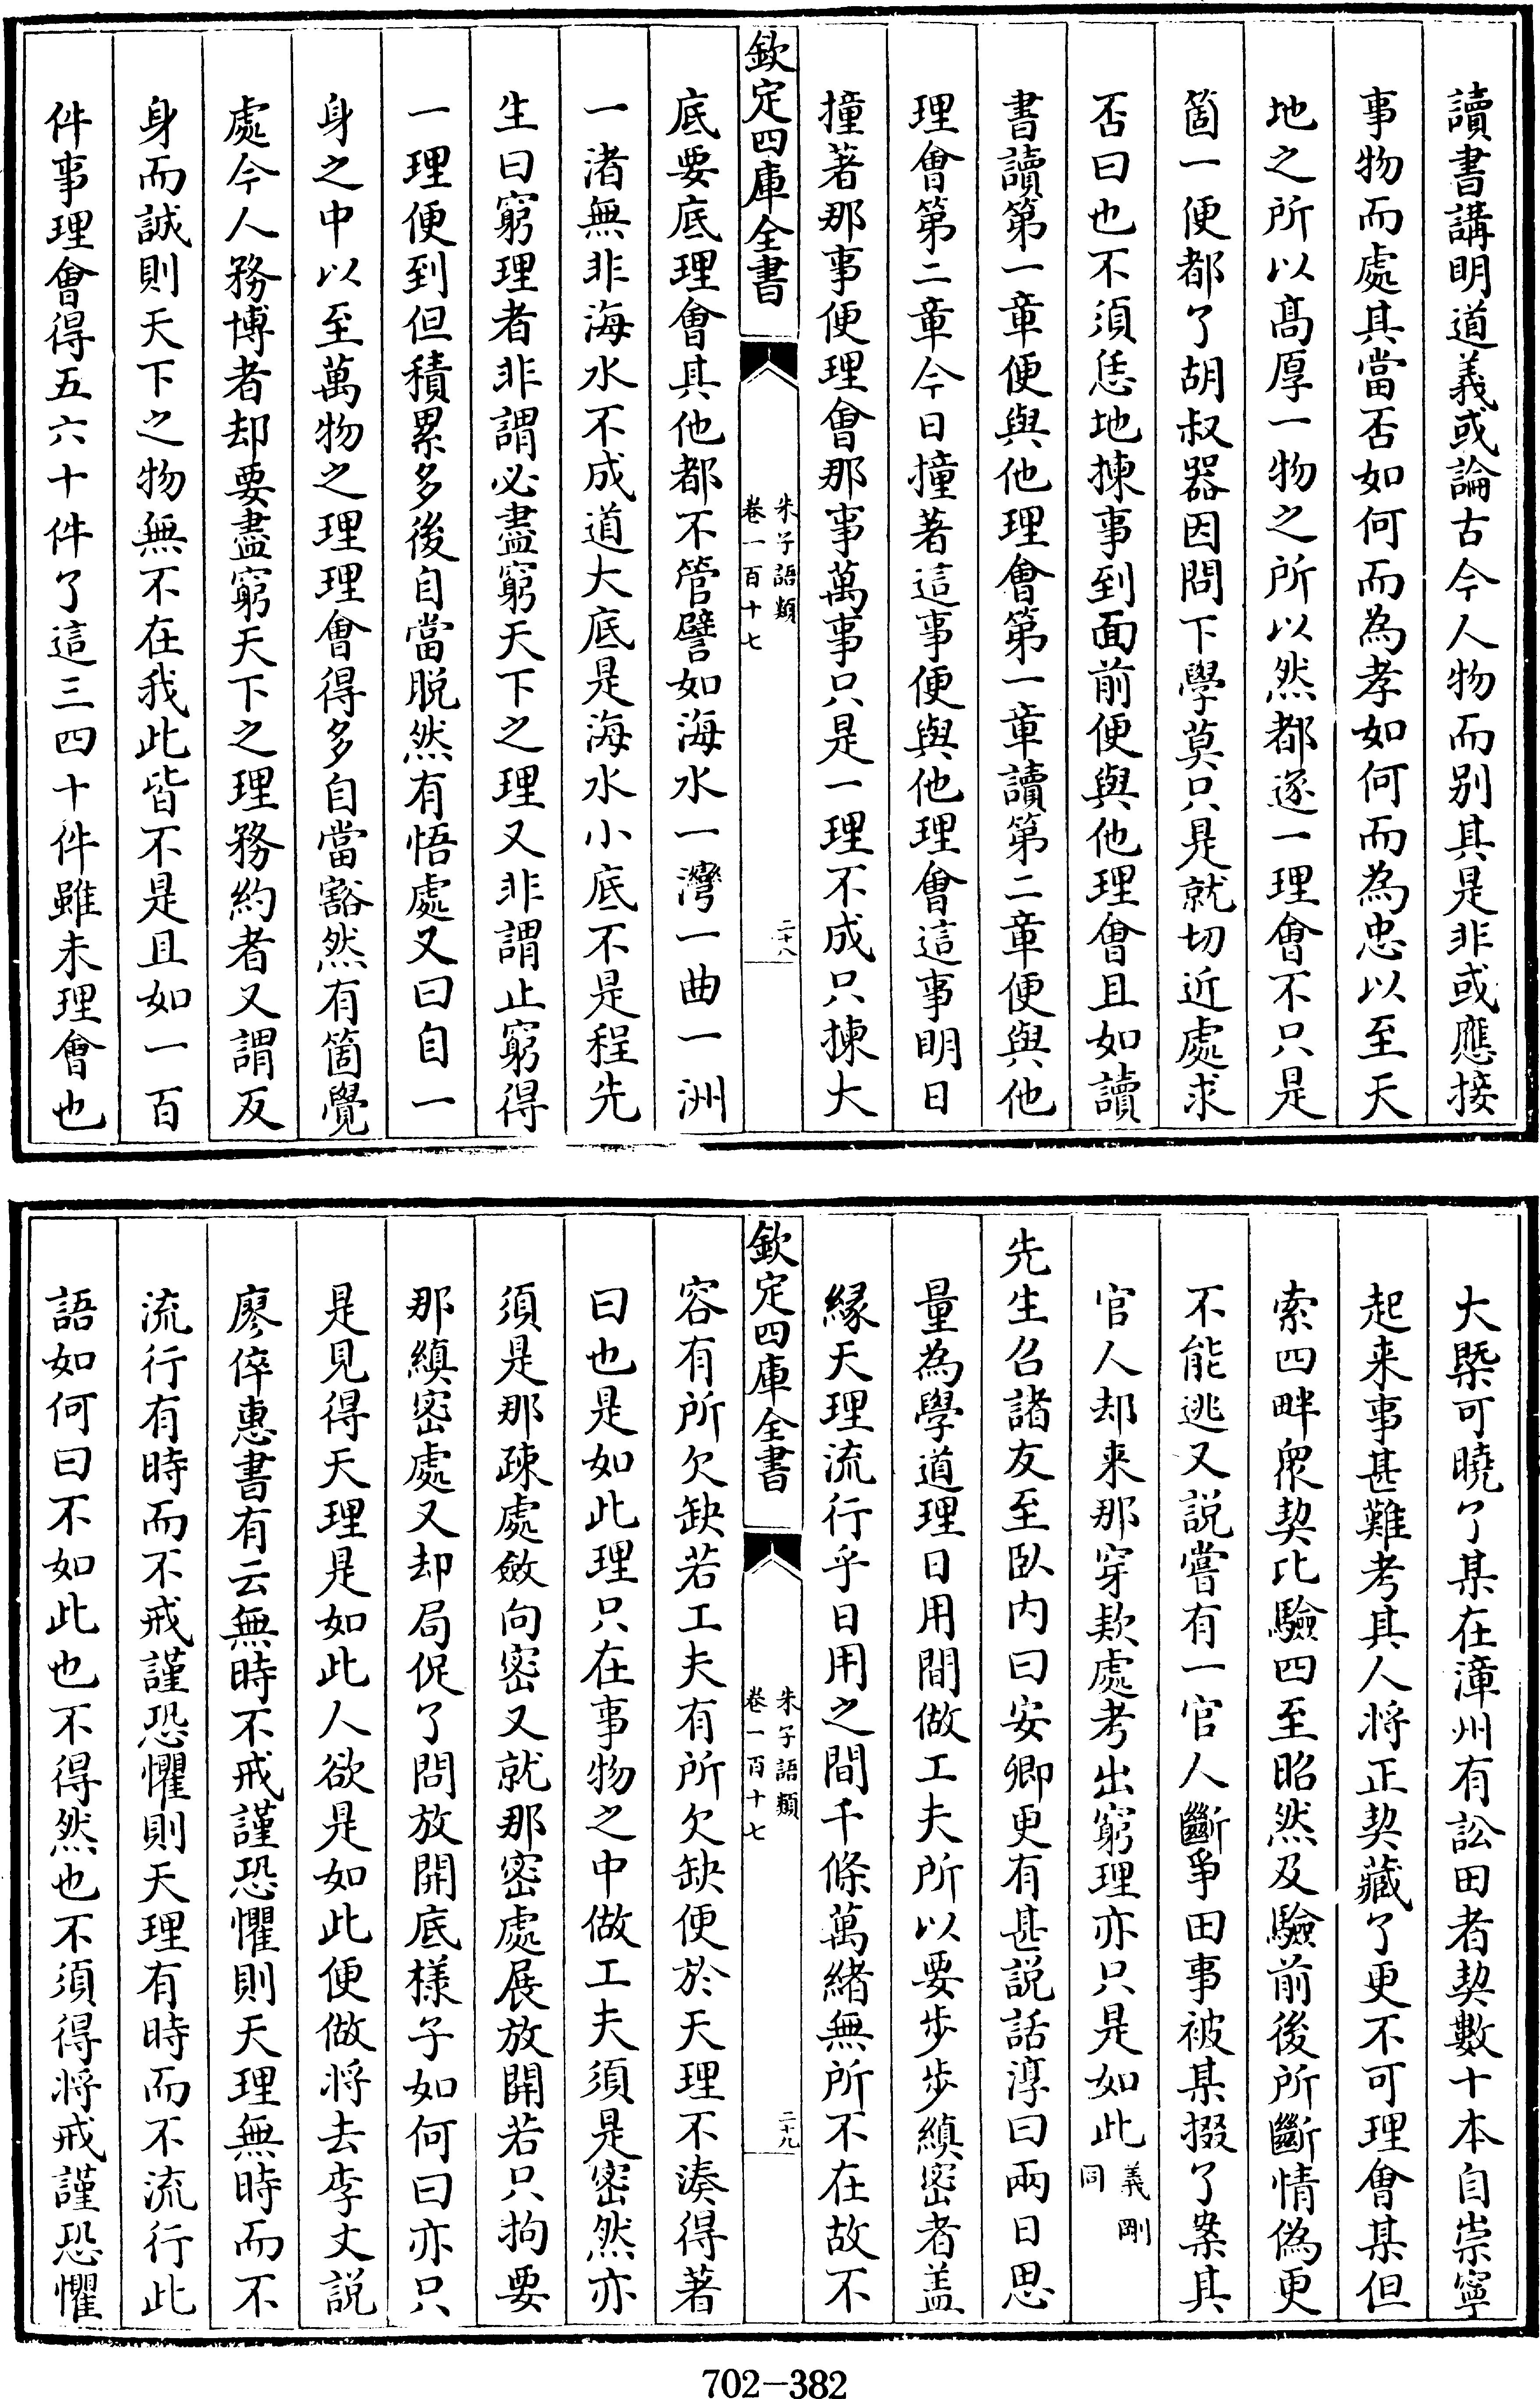 讀書講明道義或論古今人物而别其是非或應接
事物而處其當否如何而為孝如何而為忠以至天
地之所以髙厚一物之所以然都逐一理會不只是
箇一便都了胡叔器因問下學莫只是就切近處求
否曰也不須恁地揀事到面前便與他理會且如讀
書讀第一章便與他理會第一章讀第二章便與他
理會第二章今日撞著這事便與他理會這事明日
撞著那事便理會那事萬事只是一理不成只揀大
欽定四庫全書
朱子語類
卷一百十七
二十八
底要底理會其他都不管譬如海水一灣一曲一洲
一渚無非海水不成道大底是海水小底不是程先
生曰窮理者非謂必盡窮天下之理又非謂止窮得
一理便到但積累多後自當脱然有悟處又曰自一
身之中以至萬物之理理會得多自當豁然有箇覺
處今人務博者却要盡窮天下之理務約者又謂反
身而誠則天下之物無不在我此皆不是且如一百
件事理會得五六十件了這三四十件雖未理會也
大槩可曉了某在漳州有訟田者契數十本自崇寧
起来事甚難考其人將正契藏了更不可理會某但
索四畔衆契比驗四至昭然及驗前後所斷情偽更
不能逃又説嘗有一官人斷爭田事被某掇了案其
官人却来那穿欵處考出窮理亦只是如此義剛同
先生召諸友至卧内曰安卿更有甚説話淳曰兩日思
量為學道理日用間做工夫所以要步步縝密者盖
縁天理流行乎日用之間千條萬緒無所不在故不
欽定四庫全書
朱子語類
卷一百十七
二十九
容有所欠缺若工夫有所欠缺便於天理不湊得著
曰也是如此理只在事物之中做工夫須是密然亦
須是那疎處斂向密又就那密處展放開若只拘要
那縝密處又却局促了問放開底樣子如何曰亦只
是見得天理是如此人欲是如此便做將去李丈説
廖倅惠書有云無時不戒謹恐懼則天理無時而不
流行有時而不戒謹恐懼則天理有時而不流行此
語如何曰不如此也不得然也不須得將戒謹恐懼
702-382